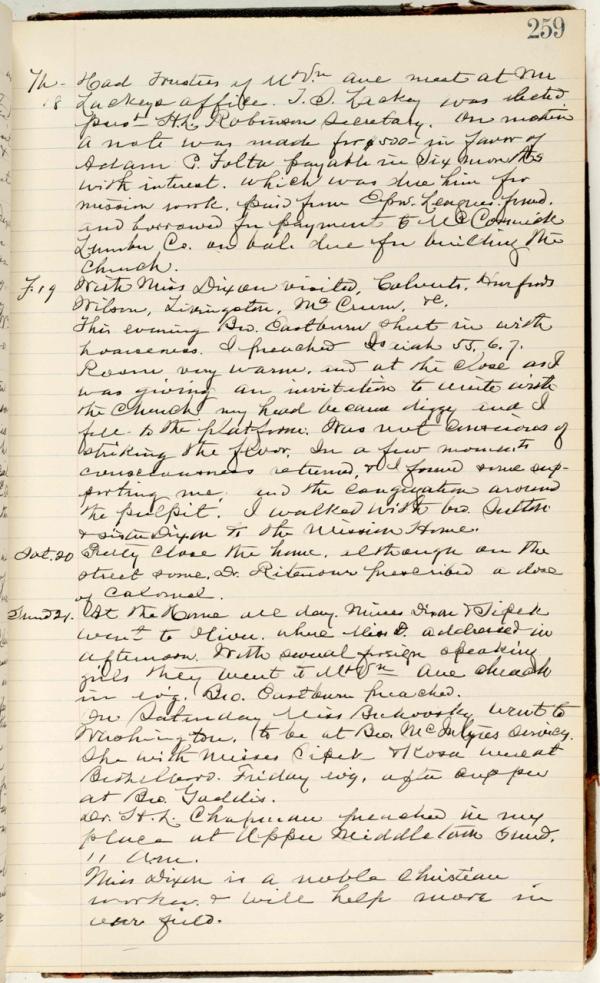 259
Th- Had Trustees of Mt Vn ave meet at Mr
18 Lackeys office. T. S. Lackey was elected
Prest H. L. Robinson Secretary. On motion
a note was made for $500- in favor of
Adam P. Folta payable in six months
with interest. which was due him for
mission work, paid from Epw. Leagues fund.
and borrowed for payment to McCormick
Lumber Co. on bal. due for building the
Church.
F. 19 With Miss Dixon visited, Calverts,
Wilson, Livingston, McCrum, &c.
This evening Bro. Eastburn shut in with
hoarseness. I preached Isaiah 55. 6. 7.
Room very warm, and at the close as I
was giving an invitation to unite with
the Church my head became diggy and I
fell to the platform. Was not conscious of
striking the floor. In a few moments
consciousness returned, & I found some sup-
porting me, and the congregation around
the pulpit. I walked with bro. Sutton
& sister Dixon to the Mission Home.
Sat. 20 Pretty close the home, although on the
street some, Dr. Ritenour prescribed a dose
of Calomel.
Sund 21. At the Home all day. Misses Dixon & Sipek
went to Oliver, where Miss D. addressed in
afternoon. With several foreign speaking
girls they went to Mt Vn Ave church
in evg. Bro. Eastburn preached.
On Saturday Miss Bukovsky went to
Washington, to be at Bro. McIntyres services.
She with Misses Sipek & Kosa were at
Friday evg. after supper
at Bro. Gaddis.
Dr. H. L. Chapman preached in my
place at Upper Middletown Sund.
11 A.m.
Miss Dixon is a noble Christian
worker, & will help more in
our field.